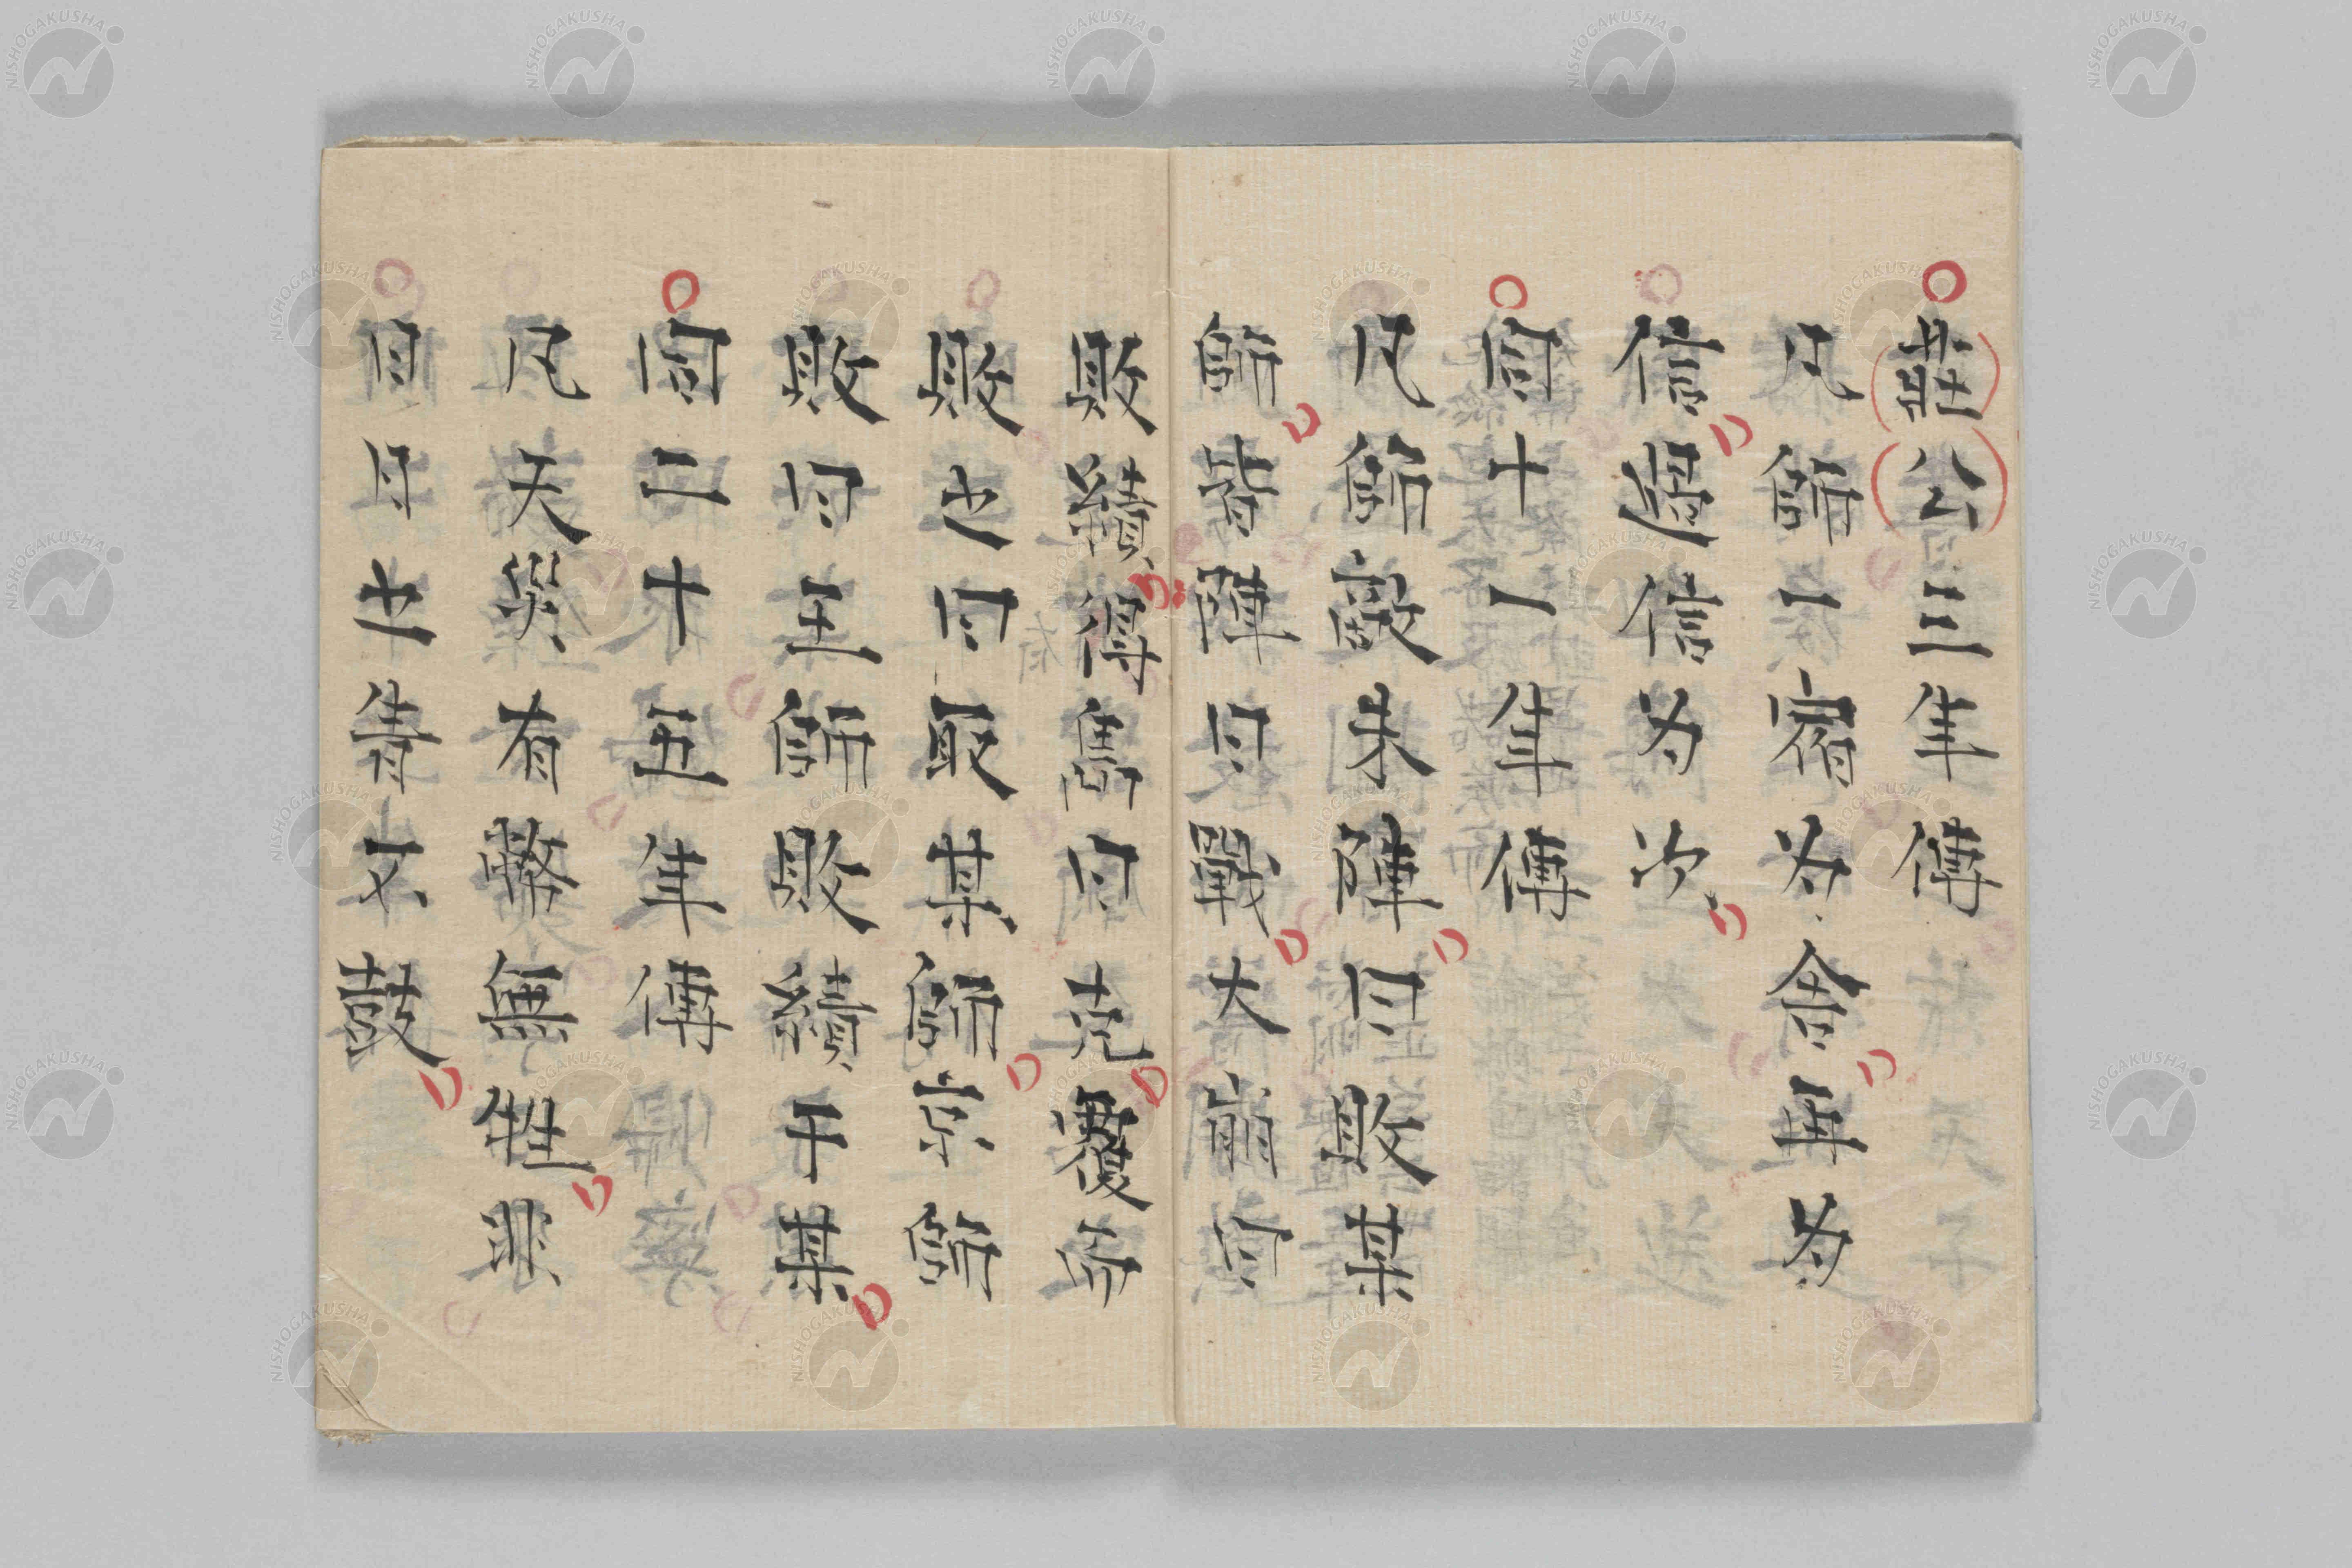 莊公三年傳
凡師一宿為舍再為
信過信為次
同十一年傳
凡師敵未陳曰敗某
師皆陳曰戰大崩曰
敗績得雋曰克覆而
敗之曰取某師京師
敗曰王師敗績于某
同二十五年傳
凡天災有幣無牲非
日月之眚不鼓
NISHOGAKUSHA